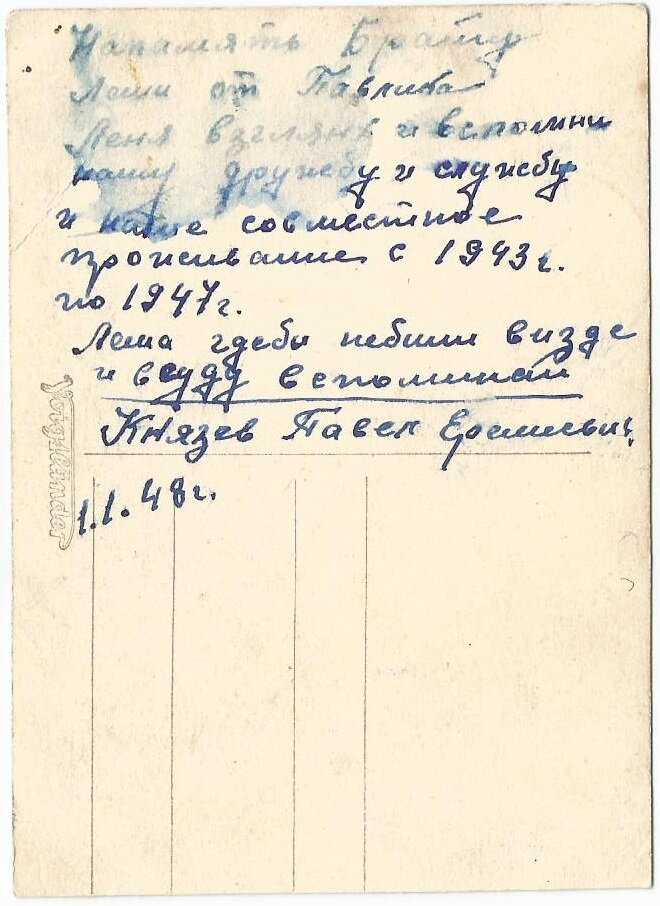 Напамять Брату
Леши от Павлика
Леня взгляни и вспомни
нашу дружбу и службу
и наше совместное
проживание с 1943г.
по 1947г.
Леша гдебы небыли визде
и всуду вспоминай
Князев Павел
1.1.48г.
Voigtländer